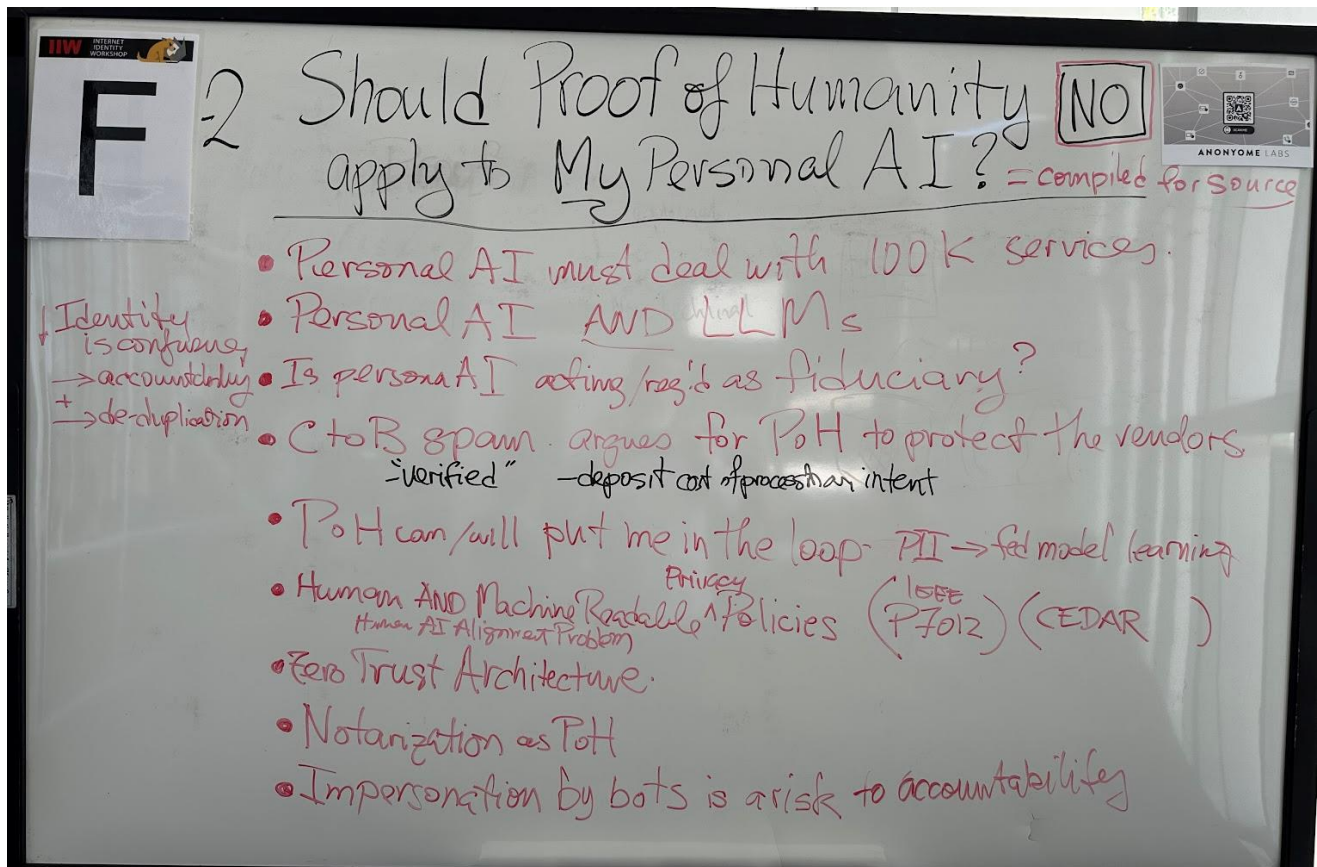 IIW INTERNET IDENTITY WORKSHOP
F -2
Should Proof of Humanity NO
apply to My Personal AI? = compiled for source
ANONYOME LABS
• Personal AI must deal with 100K services.
• Personal AI AND LLMs
• Is persona AI acting/reg'd as fiduciary?
• C to B spam argues for PoH to protect the vendors
-"verified" -deposit cost of processing an intent
• PoH can/will put me in the loop- PII → fed model learning
• Human AND Machine Readable ^ Privacy Policies (IEEE P7012) (CEDAR )
Human AI Alignment Problem
• Zero Trust Architecture.
• Notarization as PoH
• Impersonation by bots is a risk to accountability
Identity
is confusing
→ accountability
+
→ de-duplication